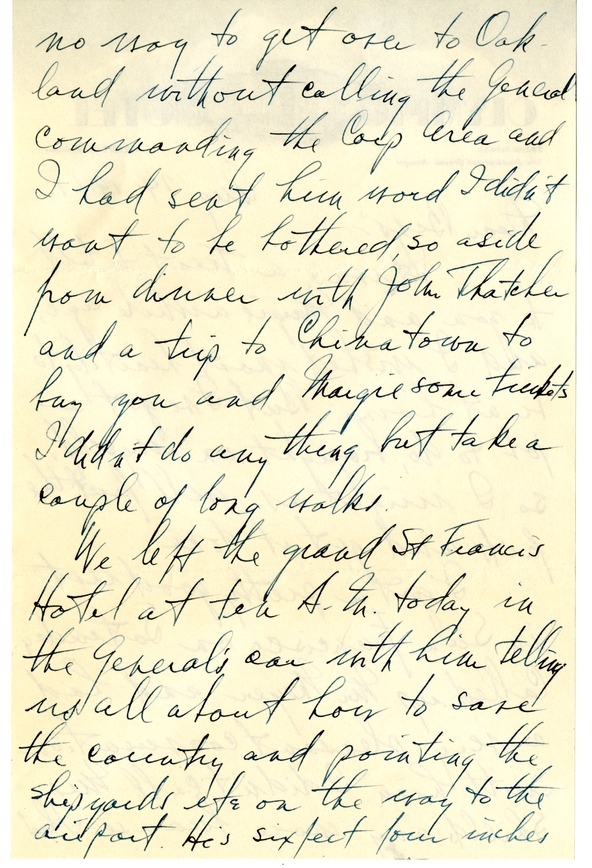 no way to get over to Oak-
land without calling the General
commanding the Corp Area and
I had sent him word I didn't
want to be bothered, so aside
from dinner with John Thatcher
and a trip to Chinatown to
buy you and Margie some trinkets
I didn't do any thing but take a
couple of long walks.
We left the grand St Francis
Hotel at ten A.M. today in
the General's car with him telling
us all about how to save
the country and pointing the
shipyards etc on the way to the
airport. His six feet four inches